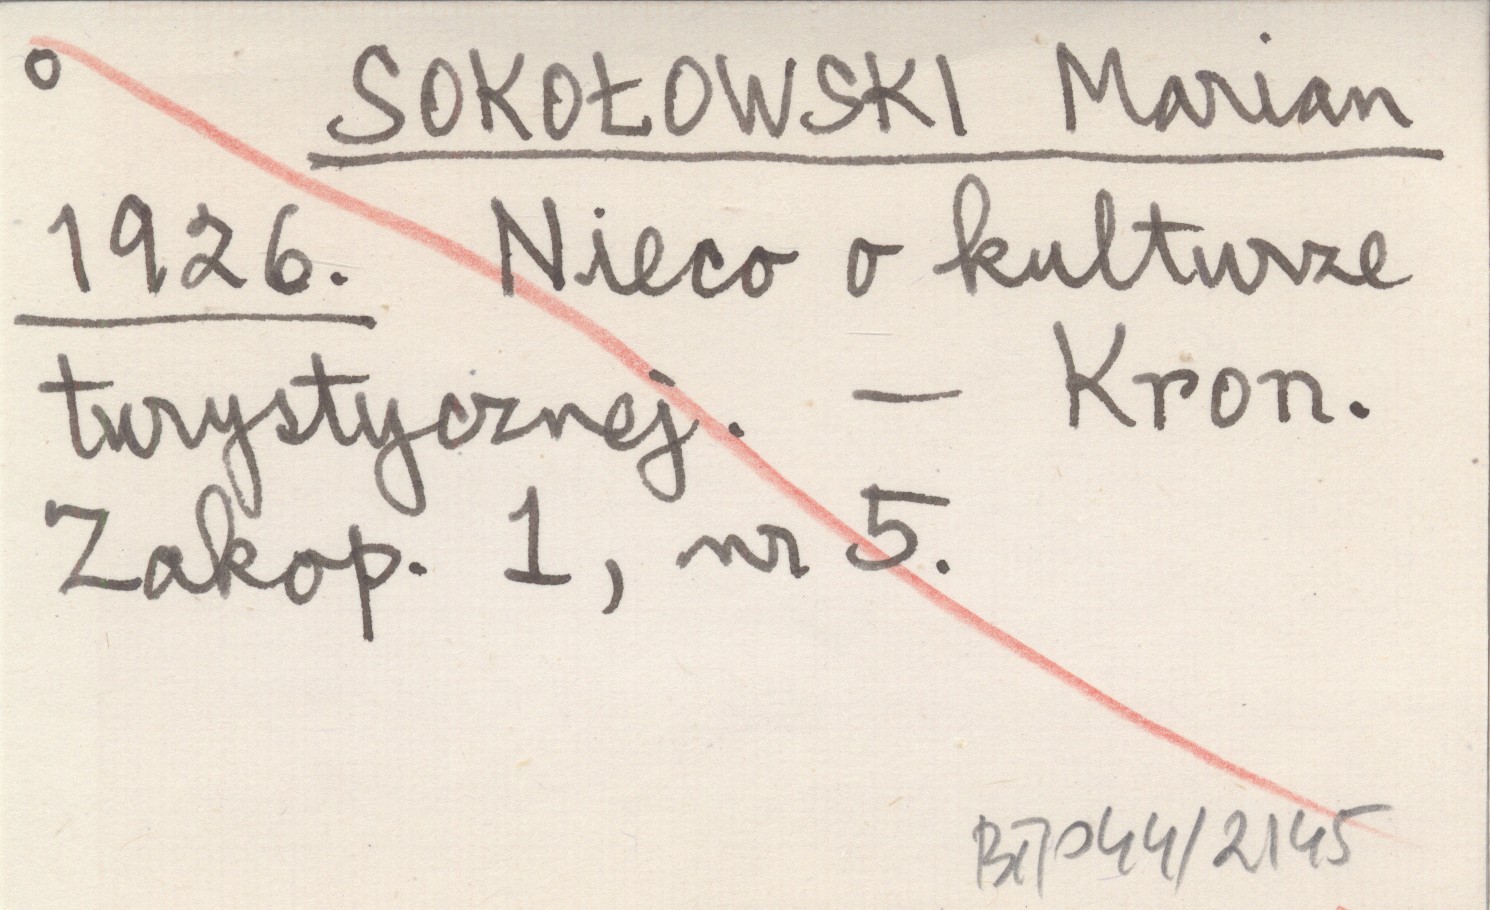 o SOKOŁOWSKI Marian
1926. Nieco o kulturze
turystycznej. — Kron.
Zakop. 1, nr 5.